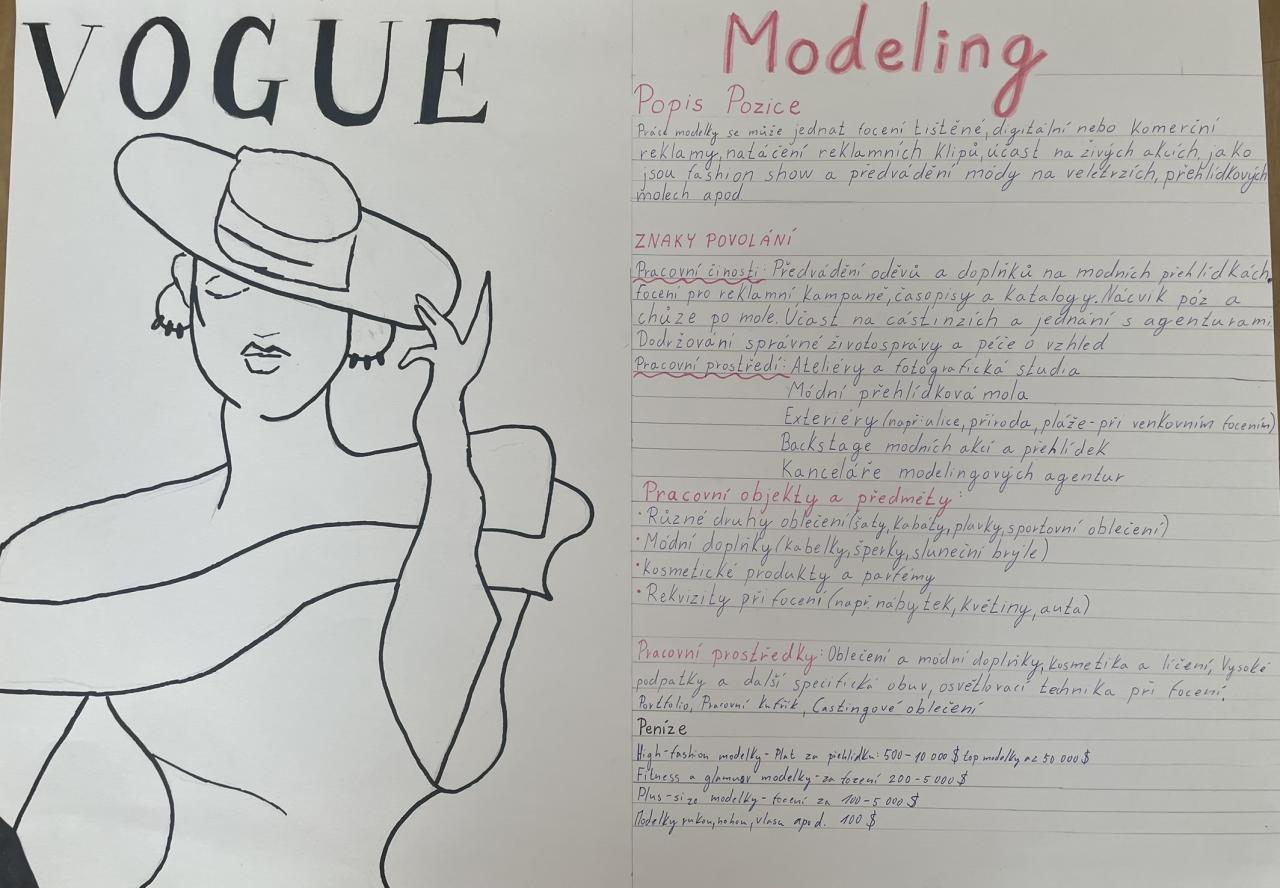 VOGUE
Modeling
Popis Pozice
Práce modelky se může jednat focení tištěné, digitální nebo komerční
reklamy, natáčení reklamních klipů, účast na živých akcích, jako
jsou fashion show a předvádění módy na veletrzích, přehlídkových
molech apod.
ZNAKY POVOLÁNÍ
Pracovní činosti: Předvádění oděvů a doplňků na modních přehlídkách,
focení pro reklamní kampaně, časopisy a katalogy. Nácvik póz a
chůze po mole. Účast na cástinzích a jednání s agenturami
Dodržování správné životosprávy a péče o vzhled
Pracovní prostředí: Ateliéry a fotografická studia
Módní přehlídková mola
Exteriéry (např: ulice, příroda, pláže - při venkovním focením)
Backstage modních akcí a přehlídek
Kanceláře modelingových agentur
Pracovní objekty a předměty:
• Různé druhy oblečení (šaty, kabáty, plavky, sportovní oblečení)
• Módní doplňky (kabelky, šperky, sluneční brýle)
• Kosmetické produkty a parfémy
• Rekvizity při focení (např. nábytek, květiny, auta)
Pracovní prostředky: Oblečení a módní doplňky, kosmetika a líčení, Vysoké
podpatky a další specifická obuv, osvětlovací technika při focení,
Portfolio, Pracovní kufřík, Castingové oblečení
Peníze
High-fashion modelky - Plat za přehlídku: 500-10 000 $ top modelky až 50 000 $
Fitness a glamour modelky - za focení 200-5 000 $
Plus-size modelky - focení za 100-5 000 $
Modelky rukou, nohou, vlasu apod. 100 $